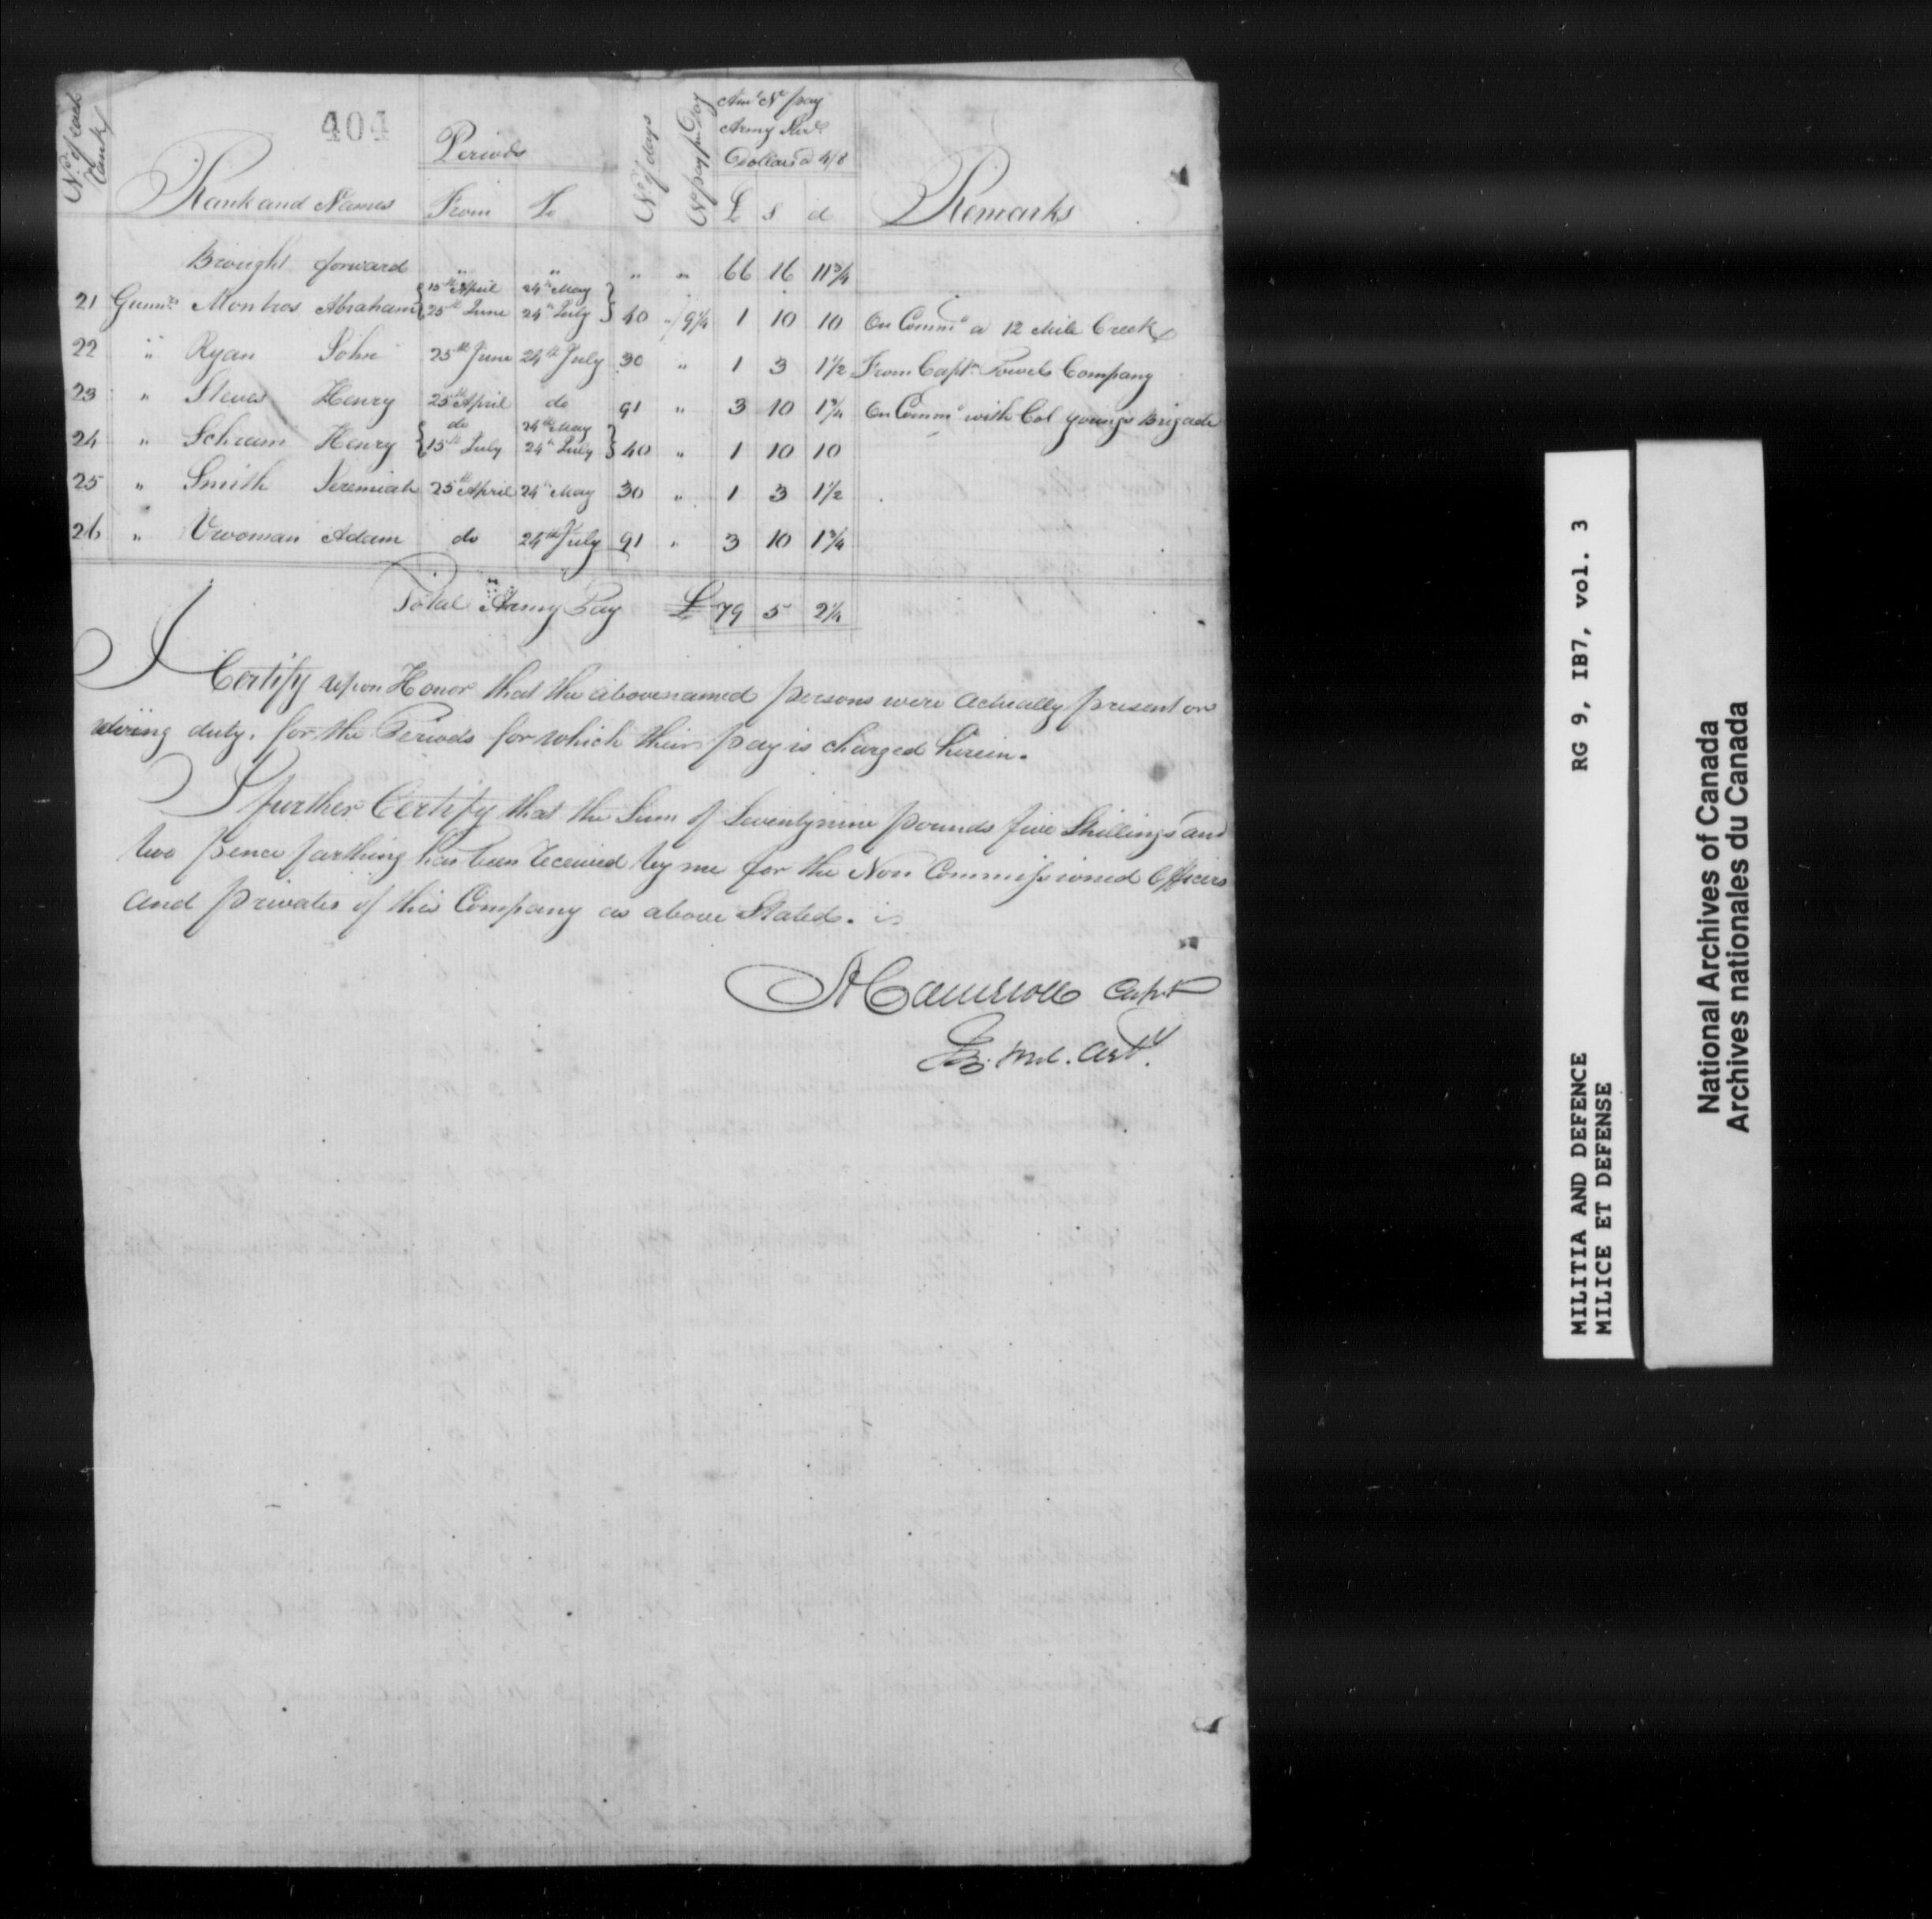 404
No. of each Rank
Rank and Names
Periods
From To
No. of days
Amt. No pay
Army Ster.
Dollars a 4/8
£ S d
Remarks
Brought forward " " " " 66 16 11 3/4
21 Gunnr. Montros Abraham { 15th April 24th May
25th June 24th July } 40 " 9 1/4 1 10 10 On Commd a 12 Mile Creek
22 " Ryan John 25th June 24th July 30 " 1 3 1 1/2 From Captn. Powels Company
23 " Steves Henry 25th April do 91 " 3 10 1 3/4 On Commd with Col Youngs Brigade
24 " Schram Henry { do 24th May
15th July 24th July } 40 " 1 10 10
25 " Smith Jeremiah 25th April 24th May 30 " 1 3 1 1/2
26 " Vrooman Adam do 24th July 91 " 3 10 1 3/4
Total Army Pay £ 79 5 2 1/4
I Certify upon Honor that the abovenamed persons were actually present or
doing duty, for the Periods for which their pay is charged herein.
I further Certify that the Sum of Seventynine pounds five Shillings and
two pence farthing has been received by me for the Non Commissioned Officers
and privates of this Company as above Stated.
A Cameron Capt
Mil. Arty.
MILITIA AND DEFENCE RG 9, IB7, vol. 3
MILICE ET DEFENSE
National Archives of Canada
Archives nationales du Canada